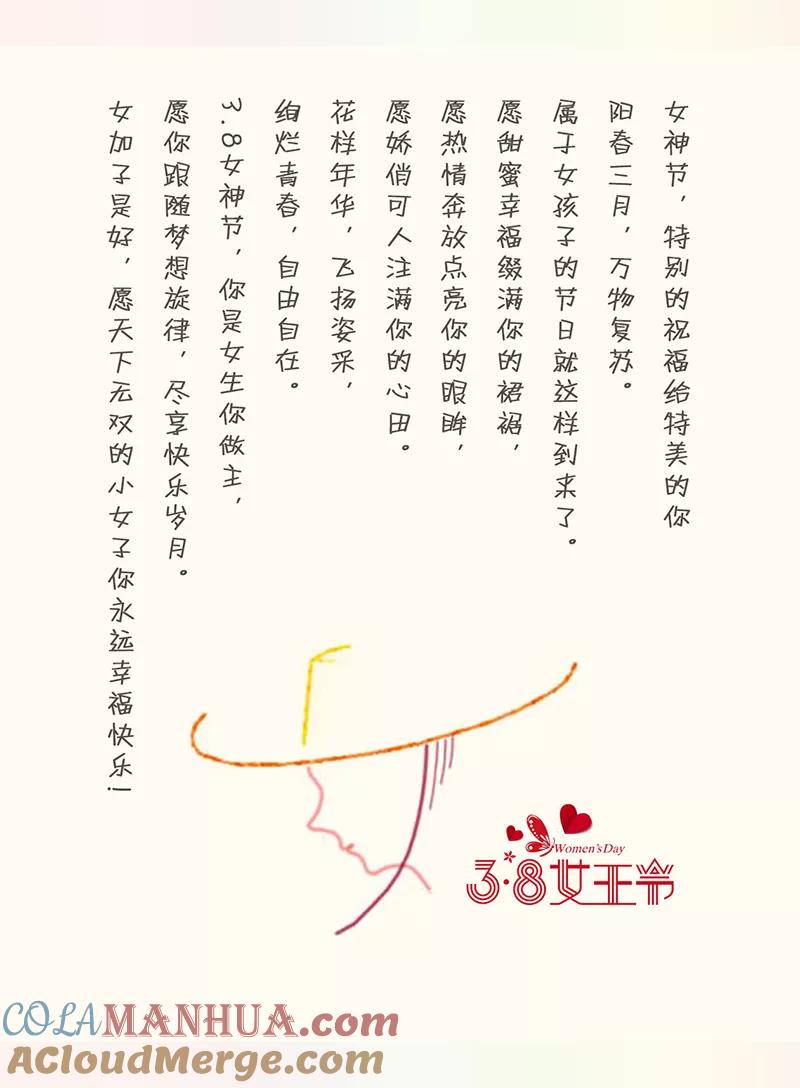 女神节，特别的祝福给特美的你
阳春三月，万物复苏。
属于女孩子的节日就这样到来了。
愿甜蜜幸福缀满你的裙裾，
愿热情奔放点亮你的眼眸，
愿娇俏可人注满你的心田。
花样年华，飞扬姿采，
绚烂青春，自由自在。
3.8女神节，你是女生你做主，
愿你跟随梦想旋律，尽享快乐岁月。
女加子是好，愿天下无双的小女子你永远幸福快乐！
Women'sDay
3·8女王节
COLAMANHUA.com
ACloudMerge.com